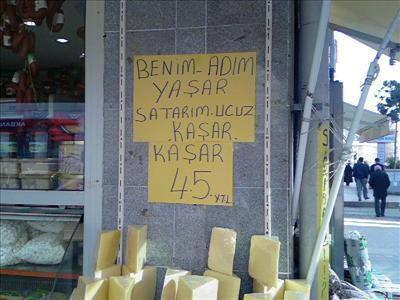 BENİM-ADIM
YAŞAR
SATARIM.UCUZ
KAŞAR.
KAŞAR
45.YTL